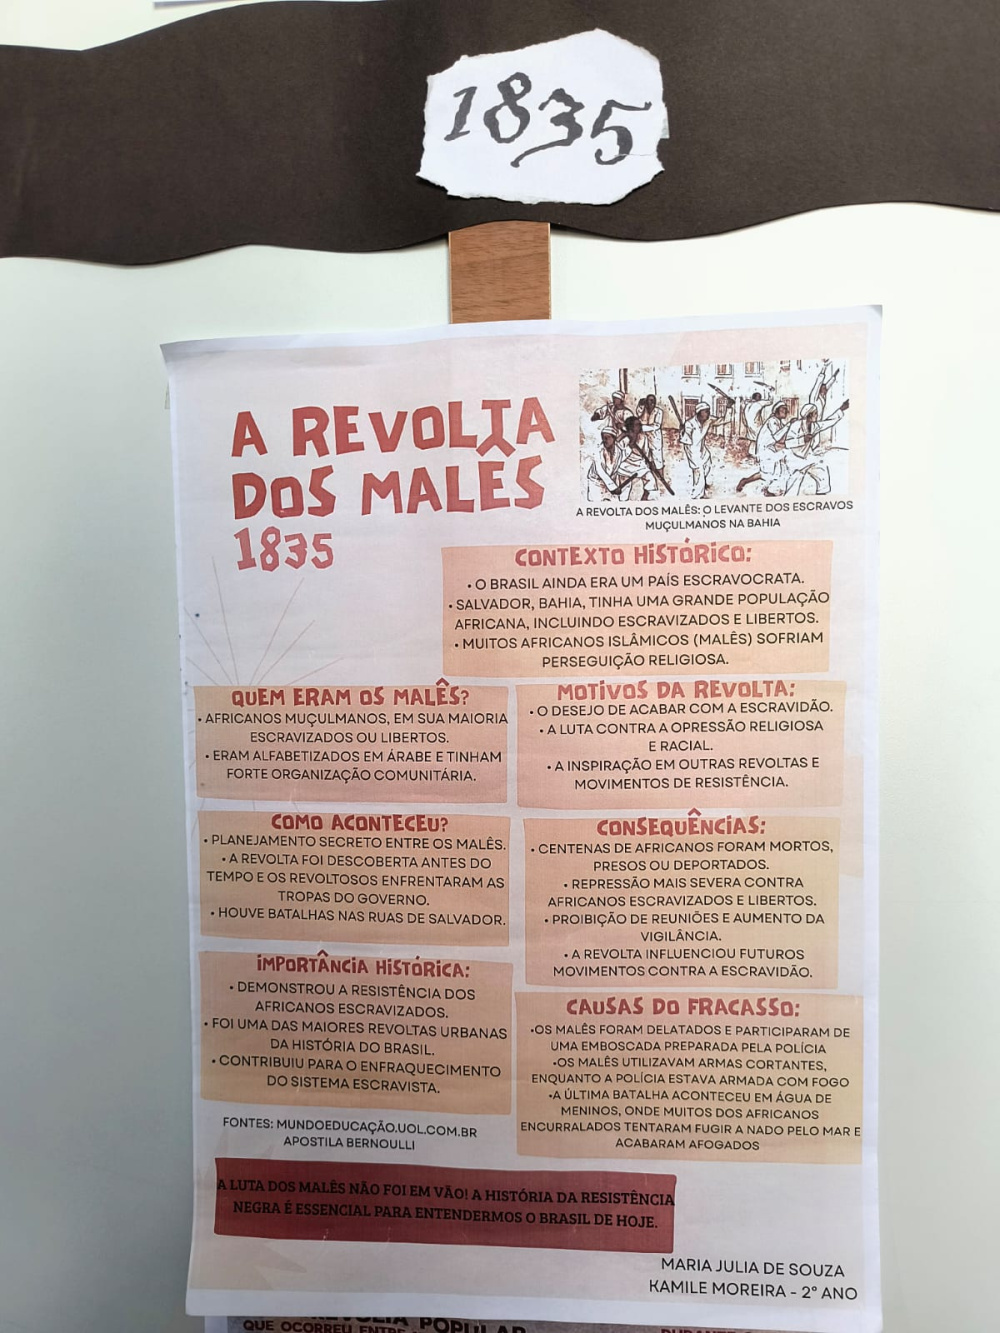 1835
A REVOLTA
DOS MALÊS
1835
A REVOLTA DOS MALÊS: O LEVANTE DOS ESCRAVOS
MUÇULMANOS NA BAHIA
CONTEXTO HISTÓRICO:
• O BRASIL AINDA ERA UM PAÍS ESCRAVOCRATA.
• SALVADOR, BAHIA, TINHA UMA GRANDE POPULAÇÃO
AFRICANA, INCLUINDO ESCRAVIZADOS E LIBERTOS.
• MUITOS AFRICANOS ISLÂMICOS (MALÊS) SOFRIAM
PERSEGUIÇÃO RELIGIOSA.
QUEM ERAM OS MALÊS?
• AFRICANOS MUÇULMANOS, EM SUA MAIORIA
ESCRAVIZADOS OU LIBERTOS.
• ERAM ALFABETIZADOS EM ÁRABE E TINHAM
FORTE ORGANIZAÇÃO COMUNITÁRIA.
MOTIVOS DA REVOLTA:
• O DESEJO DE ACABAR COM A ESCRAVIDÃO.
• A LUTA CONTRA A OPRESSÃO RELIGIOSA
E RACIAL.
• A INSPIRAÇÃO EM OUTRAS REVOLTAS E
MOVIMENTOS DE RESISTÊNCIA.
COMO ACONTECEU?
• PLANEJAMENTO SECRETO ENTRE OS MALÊS.
• A REVOLTA FOI DESCOBERTA ANTES DO
TEMPO E OS REVOLTOSOS ENFRENTARAM AS
TROPAS DO GOVERNO.
• HOUVE BATALHAS NAS RUAS DE SALVADOR.
CONSEQUÊNCIAS:
• CENTENAS DE AFRICANOS FORAM MORTOS,
PRESOS OU DEPORTADOS.
• REPRESSÃO MAIS SEVERA CONTRA
AFRICANOS ESCRAVIZADOS E LIBERTOS.
• PROIBIÇÃO DE REUNIÕES E AUMENTO DA
VIGILÂNCIA.
• A REVOLTA INFLUENCIOU FUTUROS
MOVIMENTOS CONTRA A ESCRAVIDÃO.
IMPORTÂNCIA HISTÓRICA:
• DEMONSTROU A RESISTÊNCIA DOS
AFRICANOS ESCRAVIZADOS.
• FOI UMA DAS MAIORES REVOLTAS URBANAS
DA HISTÓRIA DO BRASIL.
• CONTRIBUIU PARA O ENFRAQUECIMENTO
DO SISTEMA ESCRAVISTA.
CAUSAS DO FRACASSO:
•OS MALÊS FORAM DELATADOS E PARTICIPARAM DE
UMA EMBOSCADA PREPARADA PELA POLÍCIA
•OS MALÊS UTILIZAVAM ARMAS CORTANTES,
ENQUANTO A POLÍCIA ESTAVA ARMADA COM FOGO
•A ÚLTIMA BATALHA ACONTECEU EM ÁGUA DE
MENINOS, ONDE MUITOS DOS AFRICANOS
ENCURRALADOS TENTARAM FUGIR A NADO PELO MAR E
ACABARAM AFOGADOS
FONTES: MUNDOEDUCAÇÃO.UOL.COM.BR
APOSTILA BERNOULLI
A LUTA DOS MALÊS NÃO FOI EM VÃO! A HISTÓRIA DA RESISTÊNCIA
NEGRA É ESSENCIAL PARA ENTENDERMOS O BRASIL DE HOJE.
MARIA JULIA DE SOUZA
KAMILE MOREIRA - 2º ANO
REVOLTA POPULAR
QUE OCORREU ENTRE